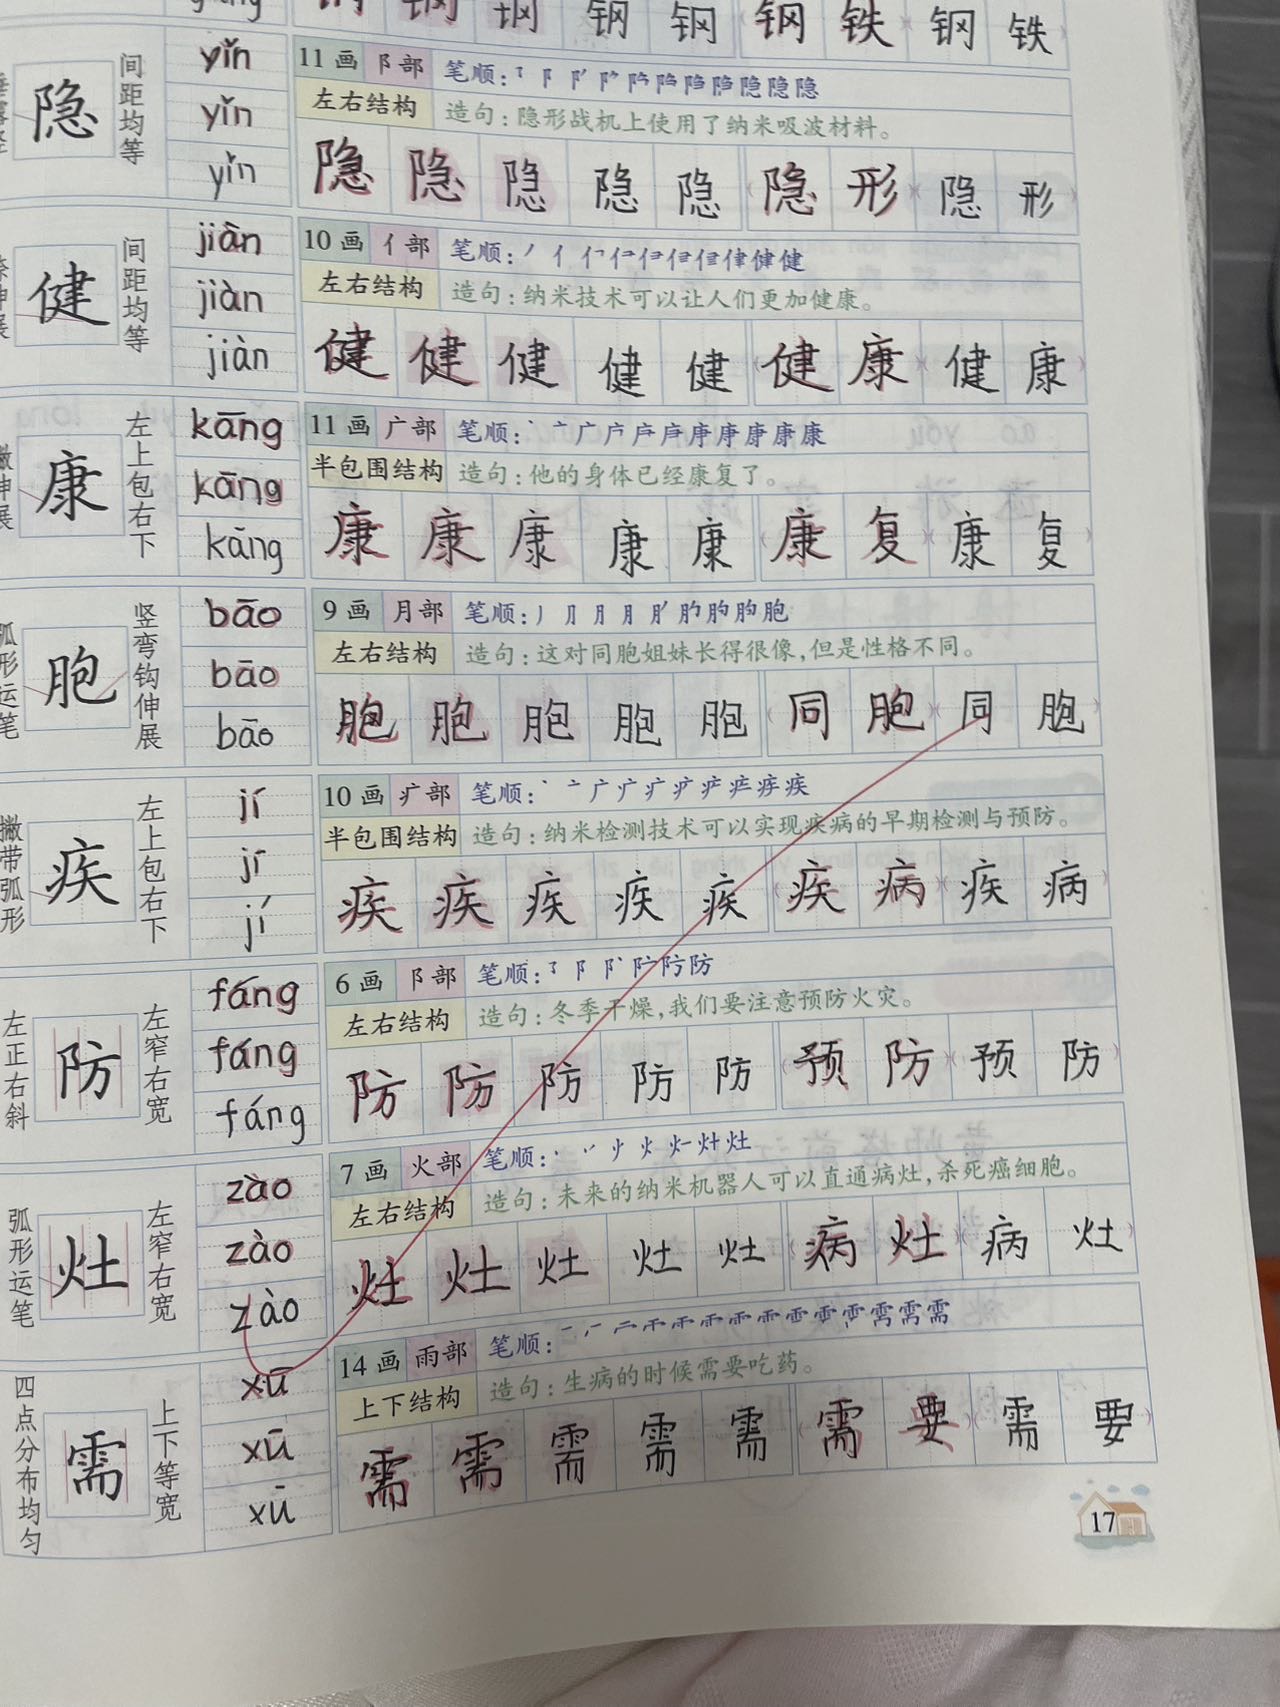 钢 钢 钢 钢 钢 钢 铁 钢 铁
隐 间距均等 yǐn yǐn yǐn
11画 阝部 笔顺:
左右结构 造句:隐形战机上使用了纳米吸波材料。
隐 隐 隐 隐 隐 隐 形 隐 形
健 间距均等 jiàn jiàn jiàn
10画 亻部 笔顺:
左右结构 造句:纳米技术可以让人们更加健康。
健 健 健 健 健 健 康 健 康
康 左上包右下 kāng kāng kāng
11画 广部 笔顺:
半包围结构 造句:他的身体已经康复了。
康 康 康 康 康 康 复 康 复
弧形运笔 胞 竖弯钩伸展 bāo bāo bāo
9画 月部 笔顺:
左右结构 造句:这对同胞姐妹长得很像,但是性格不同。
胞 胞 胞 胞 胞 同 胞 同 胞
撇带弧形 疾 左上包右下 jí jí jí
10画 疒部 笔顺:
半包围结构 造句:纳米检测技术可以实现疾病的早期检测与预防。
疾 疾 疾 疾 疾 疾 病 疾 病
左正右斜 防 左窄右宽 fáng fáng fáng
6画 阝部 笔顺:
左右结构 造句:冬季干燥,我们要注意预防火灾。
防 防 防 防 防 预 防 预 防
弧形运笔 灶 左窄右宽 zào zào zào
7画 火部 笔顺:
左右结构 造句:未来的纳米机器人可以直通病灶,杀死癌细胞。
灶 灶 灶 灶 灶 病 灶 病 灶
四点分布均匀 需 上下等宽 xū xū xū
14画 雨部 笔顺:
上下结构 造句:生病的时候需要吃药。
需 需 需 需 需 需 要 需 要
17